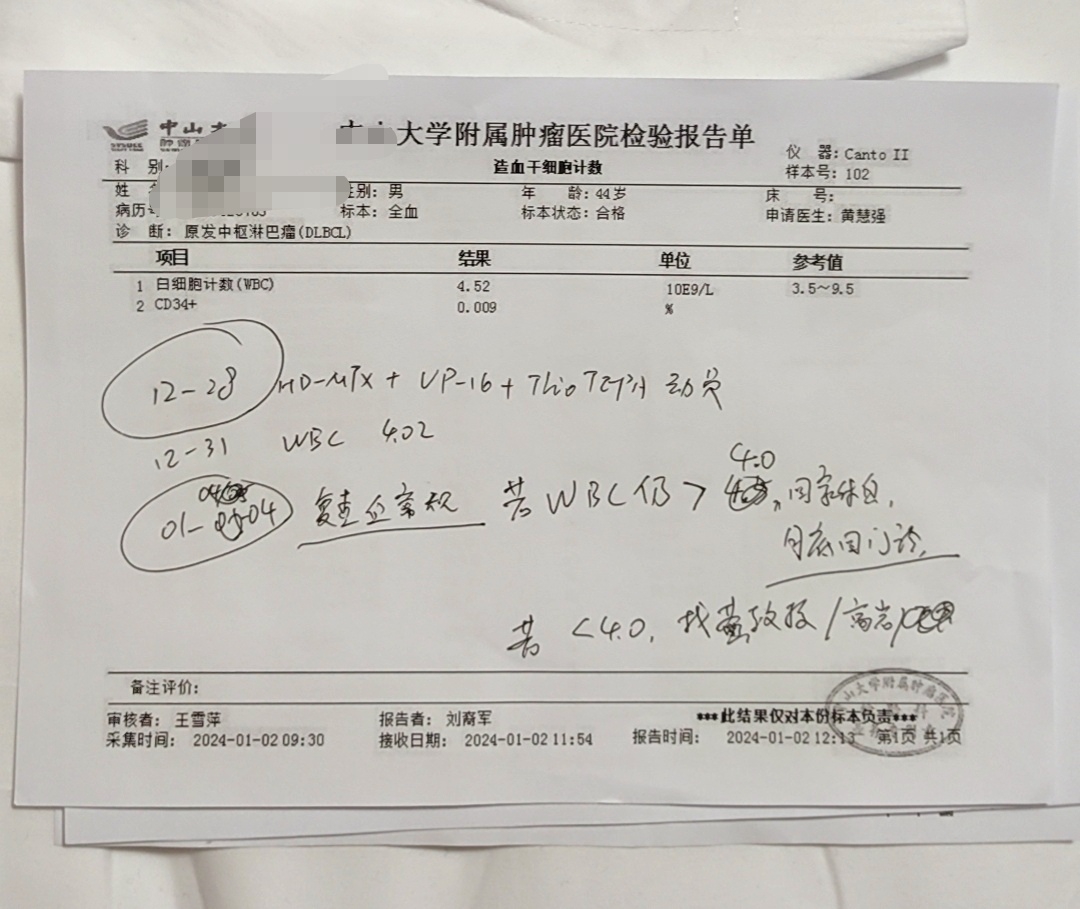 中山大学附属肿瘤医院检验报告单
造血干细胞计数
仪 器: Canto II
样本号: 102
科 别:
性别: 男
年 龄: 44岁
床 号:
病历号
标本: 全血
标本状态: 合格
申请医生: 黄慧强
诊 断: 原发中枢淋巴瘤(DLBCL)
项目 结果 单位 参考值
1 白细胞计数(WBC) 4.52 10E9/L 3.5~9.5
2 CD34+ 0.009 %
12-28 HD-MTX + VP-16 + ThioTEPA 动员
12-31 WBC 4.02
01-04 复查血常规 若WBC仍> 4.0, 回家休息,
月底回门诊.
若 <4.0, 找黄教授/高岩
备注评价:
审核者: 王雪萍 报告者: 刘裔军 ***此结果仅对本份标本负责***
采集时间: 2024-01-02 09:30 接收日期: 2024-01-02 11:54 报告时间: 2024-01-02 12:13 第1页 共1页